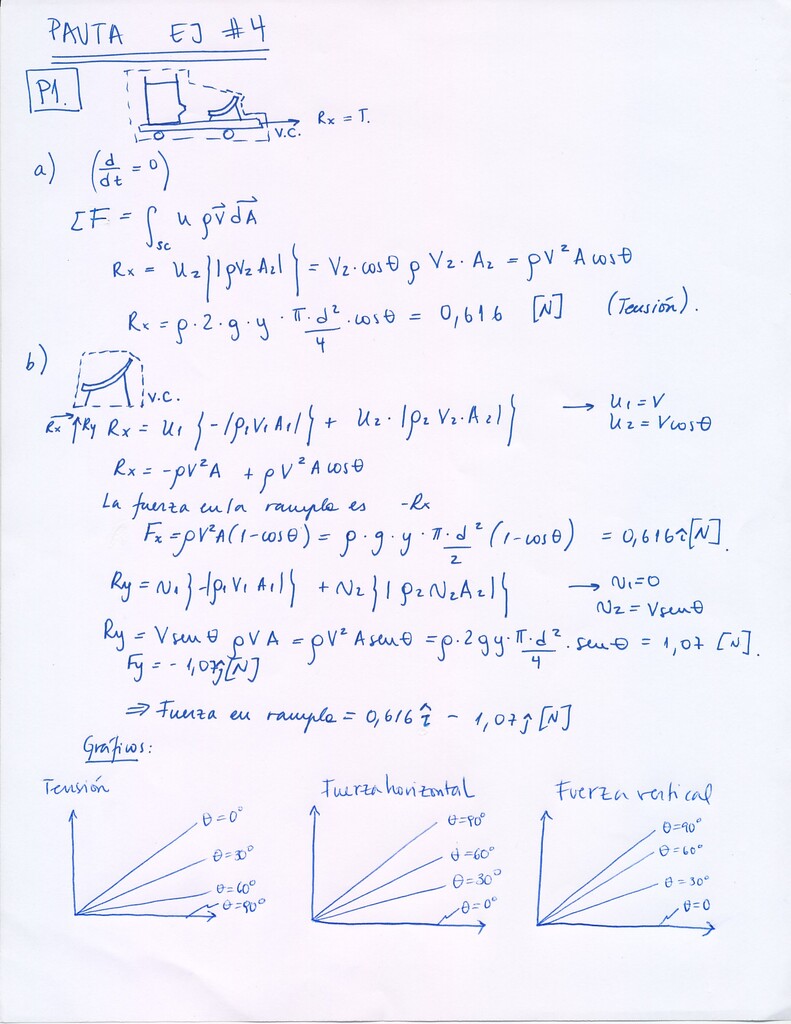 PAUTA EJ #4
P1.
Rx = T.
V.C.
a) (d/dt = 0)
ΣF = ∫sc u ρv⃗ dA⃗
Rx = u2 {|ρV2 A2|} = V2·cosθ ρ V2·A2 = ρV²A cosθ
Rx = ρ·2·g·y·π·d²/4·cosθ = 0,616 [N] (Tensión).
b)
V.C.
Rx Ry Rx = u1 {-|ρ1V1A1|} + u2·|ρ2 V2·A2|} → u1 = V
u2 = Vcosθ
Rx = -ρV²A + ρV²A cosθ
La fuerza en la rampla es -Rx
Fx = ρV²A(1-cosθ) = ρ·g·y·π·d²/2 (1-cosθ) = 0,616 î [N].
Ry = v1 {-|ρ1 V1 A1|} + v2 {|ρ2 v2 A2|} → v1 = 0
v2 = Vsenθ
Ry = Vsenθ ρVA = ρV²A senθ = ρ·2gy·π·d²/4·senθ = 1,07 [N].
Fy = -1,07ĵ [N]
⇒ Fuerza en rampla = 0,616 î - 1,07 ĵ [N]
Gráficos:
Tensión
θ=0°
θ=30°
θ=60°
θ=90°
Fuerza horizontal
θ=90°
θ=60°
θ=30°
θ=0°
Fuerza vertical
θ=90°
θ=60°
θ=30°
θ=0